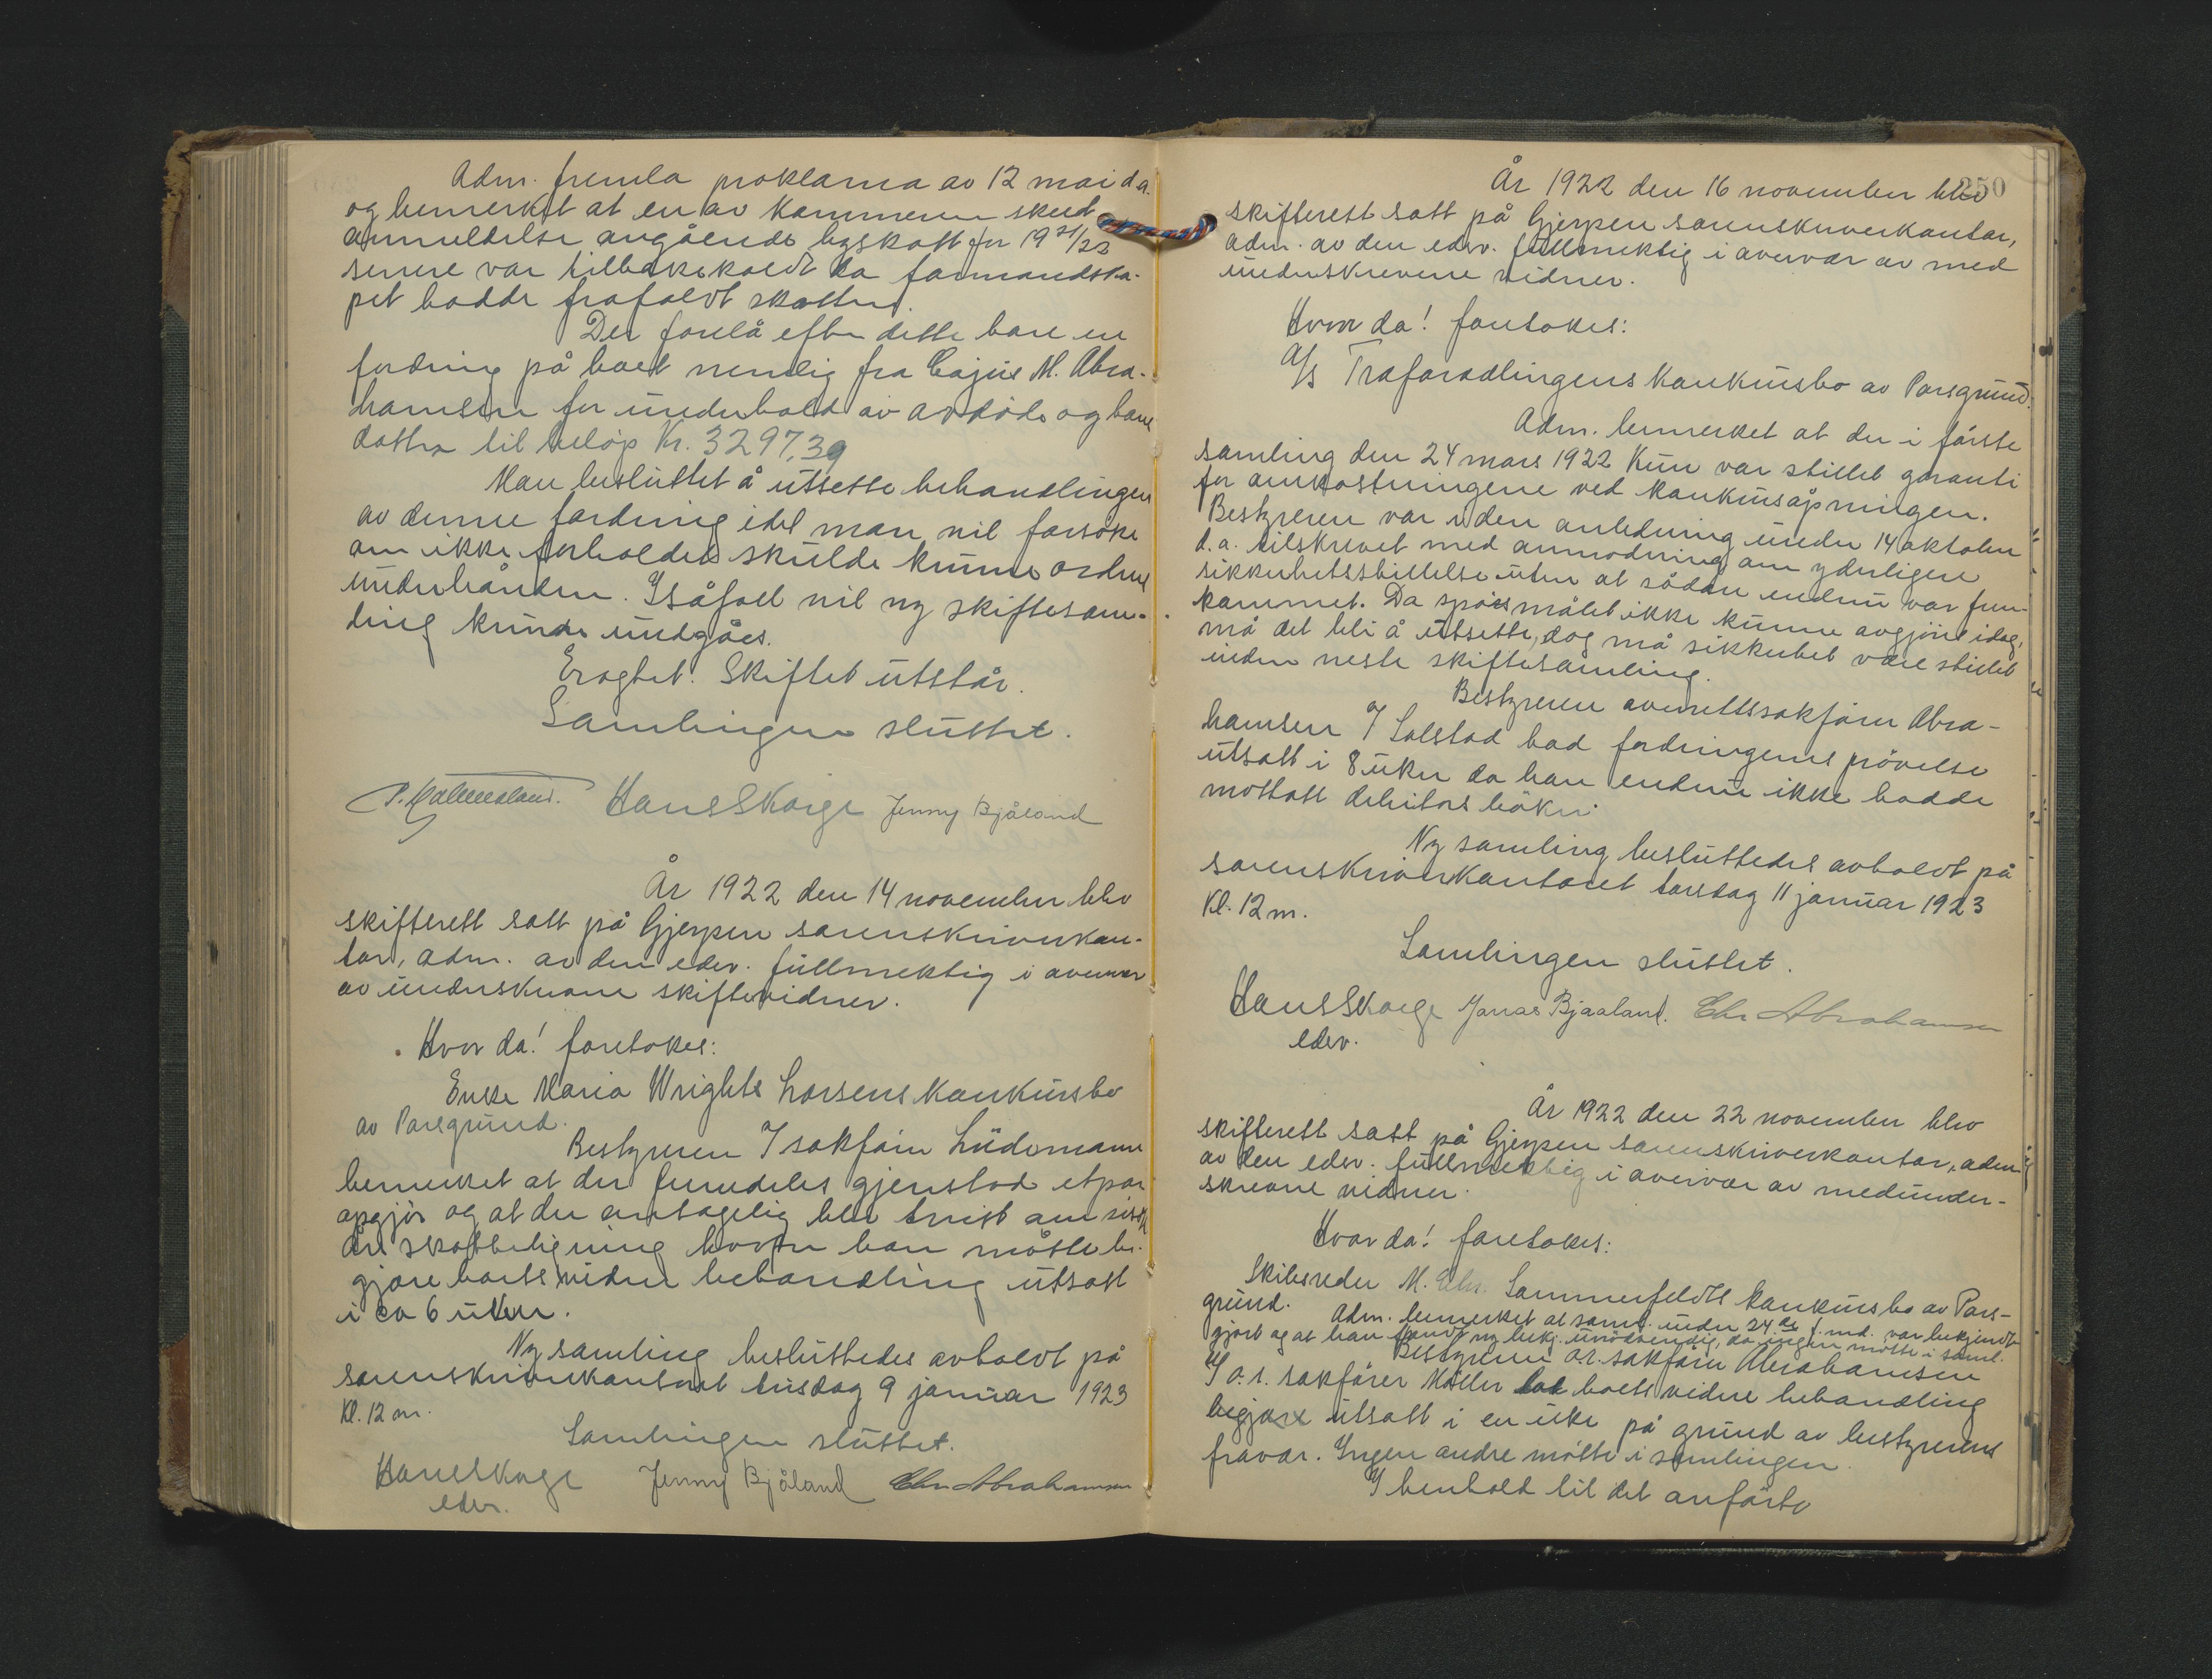 Adm. fremla proklama av 12 mai d.a.
og bemerket at en av kommunen skeet
anmeldelse angående byskatt for 1921/22
senere var tilbakekaldt da formandska-
pet hadde frafaldt skatten.
Der forelå efter dette bare en
fordring på boet nemlig fra Cajus M. Abra-
hamsen for underhold av avdöde og hans
datter til belöp Kr. 3297,39
Man besluttet å utsette behandlingen
av denne fordring idet man vil forsöke
om ikke forholdet skulde kunne ordnes
underhånden. I såfall vil ny skiftesam-
ling kunde undgåes.
Eragtet: Skiftet utstår.
Samlingen sluttet.
Hans Skarge Jenny Bjåland
År 1922 den 14 november blev
skifterett satt på Gjerpen sorenskriverkon-
tor, adm. av den edsv. fullmektig i overvær
av underskrevne skiftevidner.
Hvor da! foretokes:
Enke Maria Wrights Larsens konkursbo
av Porsgrund.
Bestyreren I sakförer Lüdemann
bemerket at der fremdeles gjenstod et par
opgjör og at der antagelig blev tvist om sidste
års skatteligning hvorfor han måtte be-
gjære boets videre behandling utsatt
i ca 6 uker.
Ny samling besluttedes avholdt på
sorenskriverkontoret tirsdag 9 januar 1923
Kl. 12 m.
Samlingen sluttet.
Hans Skarge Jenny Bjåland Chr Abrahamsen
edsv.
250
År 1922 den 16 november blev
skifterett satt på Gjerpen sorenskriverkontor,
adm. av den edsv. fullmektig i overvær av med
underskrevne vidner.
Hvor da! foretokes:
A/S Træforædlingens konkursbo av Porsgrund.
Adm. bemerket at der i förste
samling den 24 mars 1922 kun var stillet garanti
for omkostningene ved konkursåpningen.
Bestyreren var i den anledning under 14 oktober
d.a. tilskrevet med anmodning om yderligere
sikkerhetsstillelse uten at sådan endnu var frem-
kommet. Da spörsmålet ikke kunne avgjöres idag,
må det bli å utsette, dog må sikkerhet være stillet
inden neste skiftesamling.
Bestyreren overrettssakförer Abra-
hamsen I Solstad bad fordringenes prövelse
utsatt i 8 uker da han endnu ikke hadde
mottatt debitors böker.
Ny samling besluttedes avholdt på
sorenskriverkontoret torsdag 11 januar 1923
Kl. 12 m.
Samlingen sluttet.
Hans Skarge Jonas Bjaaland. Chr Abrahamsen
edsv.
År 1922 den 22 november blev
skifterett satt på Gjerpen sorenskriverkontor, adm
av den edsv. fullmektig i overvær av medunder-
skrevne vidner.
Hvor da! foretokes:
Skibsreder M. Chr. Sammerfeldts konkursbo av Pors-
grund. Adm. bemerket at saml. under 24de f. md. var bekjendt-
gjort og at han fandt ny bekj. unödvendig, da ingen mötte i saml.
Bestyreren o.r. sakförer Abrahamsen
I o.r. sakförer Möller bad boets videre behandling
begjært utsatt i en uke på grund av bestyrerens
fravær. Ingen andre mötte i samlingen.
I henhold til det anförte